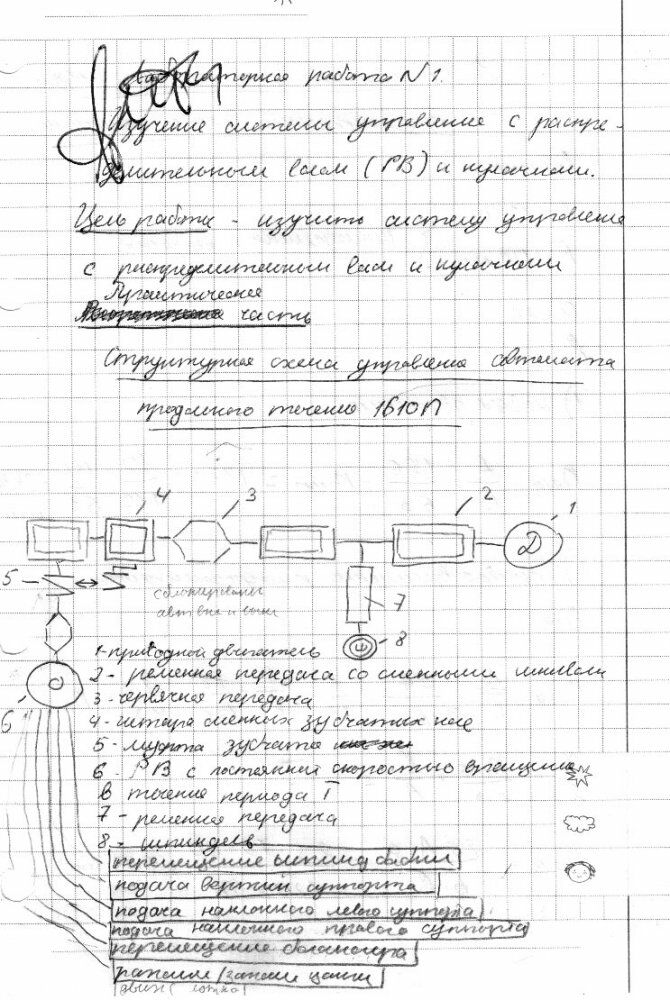 Лабораторная работа N1.
Изучение системы управление с распре-
делительным валом (РВ) и кулачками.
Цель работы - изучить систему управления
с распределительным валом и кулачками
Практическая
часть
Структурная схема управления автомата
продольного точения 1610П
4 3 2 1
Д
5
сблокированы
7
8
6
1-приводной двигатель
2- ременная передача со сменными шкивами
3 - червячная передача
4 - гитара сменных зубчатых колес
5 - муфта зубчатая
6. РВ с постоянной скоростью вращения
в течение периода Т
7 - ременная передача
8 - шпиндель
перемещение шпинд бабки
подача вертик суппорта
подача наклонного левого суппорта
подача наклонного правого суппорта
перемещение балансира
разжим/зажим цанги
движ( лотка)